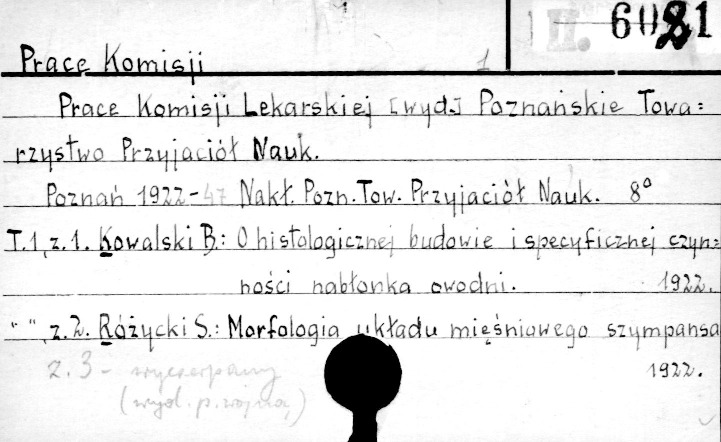 II. 6021
Prace Komisji 1
Prace Komisji Lekarskiej [wyd.] Poznańskie Towa=
rzystwo Przyjaciół Nauk.
Poznań 1922-47 Nakł. Pozn. Tow. Przyjaciół Nauk. 8°
T.1, z.1. Kowalski B.: O histologicznej budowie i specyficznej czyn=
ności nabłonka owodni. 1922.
" ", z.2. Różycki S.: Morfologia układu mięśniowego szympansa
1922.
z.3 - wyczerpany
(wyd. p. wojną)